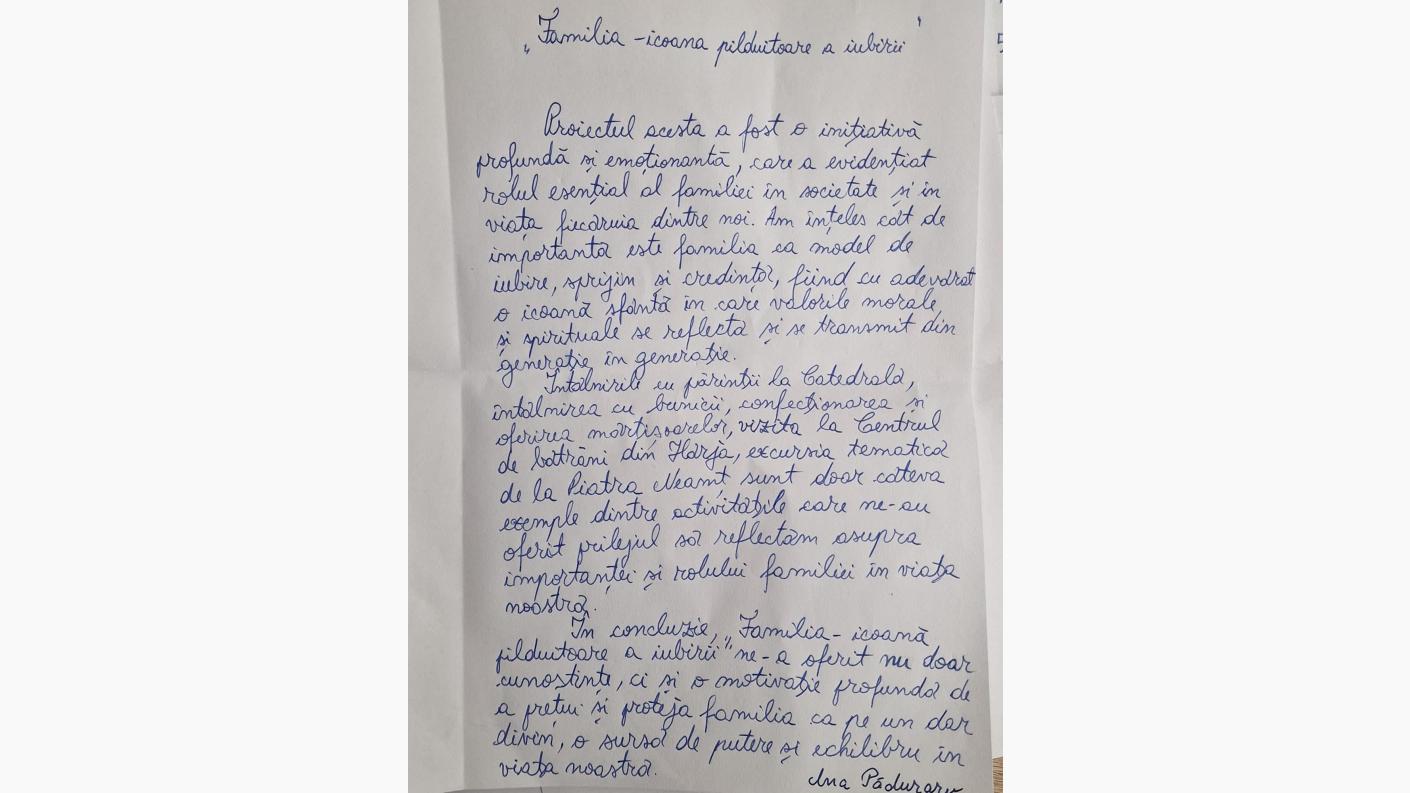 „Familia - icoana pilduitoare a iubirii”
Proiectul acesta a fost o inițiativă
profundă și emoționantă, care a evidențiat
rolul esențial al familiei în societate și în
viața fiecăruia dintre noi. Am înțeles cât de
importantă este familia ca model de
iubire, sprijin și credință, fiind cu adevărat
o icoană sfântă în care valorile morale,
și spirituale se reflectă și se transmit din
generație în generație.
Întâlnirile cu părinții la Catedrală,
întâlnirea cu bunicii, confecționarea și
oferirea mărțișoarelor, vizita la Centrul
de bătrâni din Hârja, excursia tematică
de la Piatra Neamț sunt doar câteva
exemple dintre activitățile care ne-au
oferit prilejul să reflectăm asupra
importanței și rolului familiei în viața
noastră.
În concluzie, „Familia - icoană
pilduitoare a iubirii” ne-a oferit nu doar
cunoștințe, ci și o motivație profundă de
a prețui și proteja familia ca pe un dar
divin, o sursă de putere și echilibru în
viața noastră.
Ana Păduraru